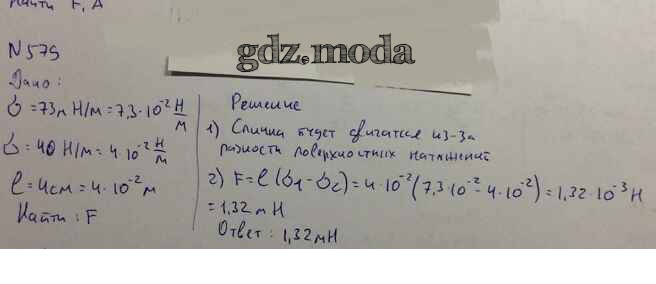 Найти F, A
gdz.moda
N 579
Дано:
б = 73м Н/м = 7,3·10⁻² Н/м
б = 40 Н/м = 4·10⁻² Н/м
l = 4см = 4·10⁻² м
Найти: F
Решение
1) Спичка будет двигатся из-за
разности поверхностных натяжений
2) F = l (б₁ - б₂) = 4·10⁻² (7,3·10⁻² - 4·10⁻²) = 1,32·10⁻³ Н
= 1,32 м Н
Ответ: 1,32 мН